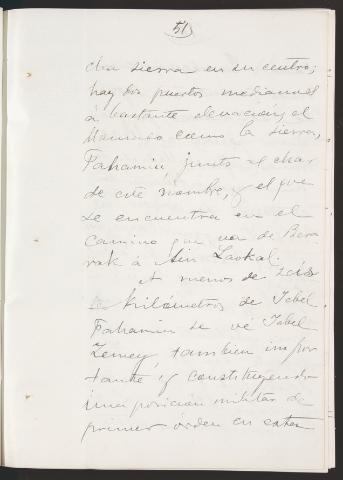 51
cha sierra en su centro;
hay dos puertos medianos
á bastante elevación, el
llamado como la sierra,
Tahamiu, junto al char
de este nombre, y el que
se encuentra en el
camino que va de Ber-
rak á Ain Laokal.
A menos de dos
kilómetros de Jebel
Tahamiu se vé Jebel
Zemey, tambien impor
tante y constituyendo
una posición militar de
primer órden en estas